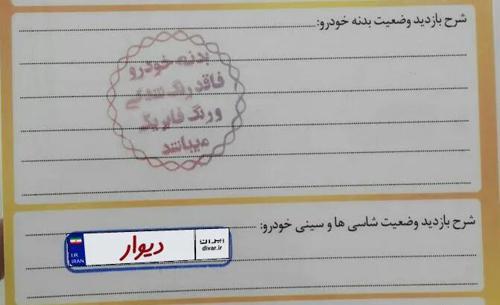 شرح بازدید وضعیت بدنه خودرو:
بدنه خودرو
فاقد رنگ شدگی
و رنگ فابریک
میباشد
شرح بازدید وضعیت شاسی ها و سینی خودرو:
I.R.
IRAN
دیوار
ایران
divar.ir